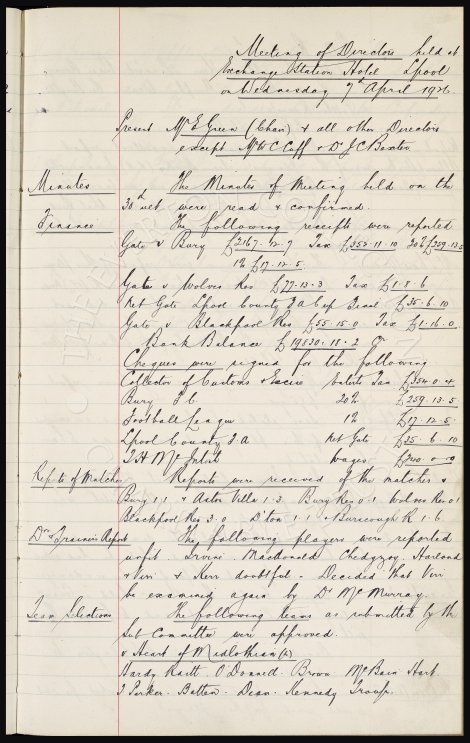 Meeting of Directors held at
Exchange Station Hotel Lpool
on Wednesday 7th April 1926
Present Mr E Green (Chair) & all other Directors
except Mr W C Cuff & Dr J C Baxter
Minutes The Minutes of Meeting held on the
30th ult were read & confirmed.
Finance The following receipts were reported
Gate v Bury £2167.12.9 Tax £353.11.10 20% £259.13.5
1% £17.12.5.
Gate v Wolves Res £77.13.3 Tax £1.8.6
Net Gate Lpool County F A Cup Final £35.6.10
Gate v Blackpool Res £55.15.0 Tax £1.16.0
Bank Balance £19830.18.2
Cheques were signed for the following
Collector of Customs & Excise Entets Tax £354.0.4
Bury F C 20% £259.13.5
Football League 1% £17.12.5
Lpool County F A Net Gate £35.6.10
T H McIntosh Wages £340.0.0
Reports of Matches Reports were received of the matches v
Bury 1.1 & Aston Villa 1.3. Bury Res 0.1 Wolves Res 0.1
Blackpool Res 3.0 D'ton 1.1 & Burscough R 1.6.
Dr & Trainers Report The following players were reported
unfit Irvine. Macdonald Chedgzoy Harland
& Virr & Kerr doubtful - Decided that Virr
be examined again by Dr McMurray.
Team Selections The following teams as submitted by the
Sub Committee were approved.
v Heart of Midlothian (h)
Hardy Raitt. O'Donnell. Brown McBain Hart.
J Parker. Batten. Dean. Kennedy Troup.